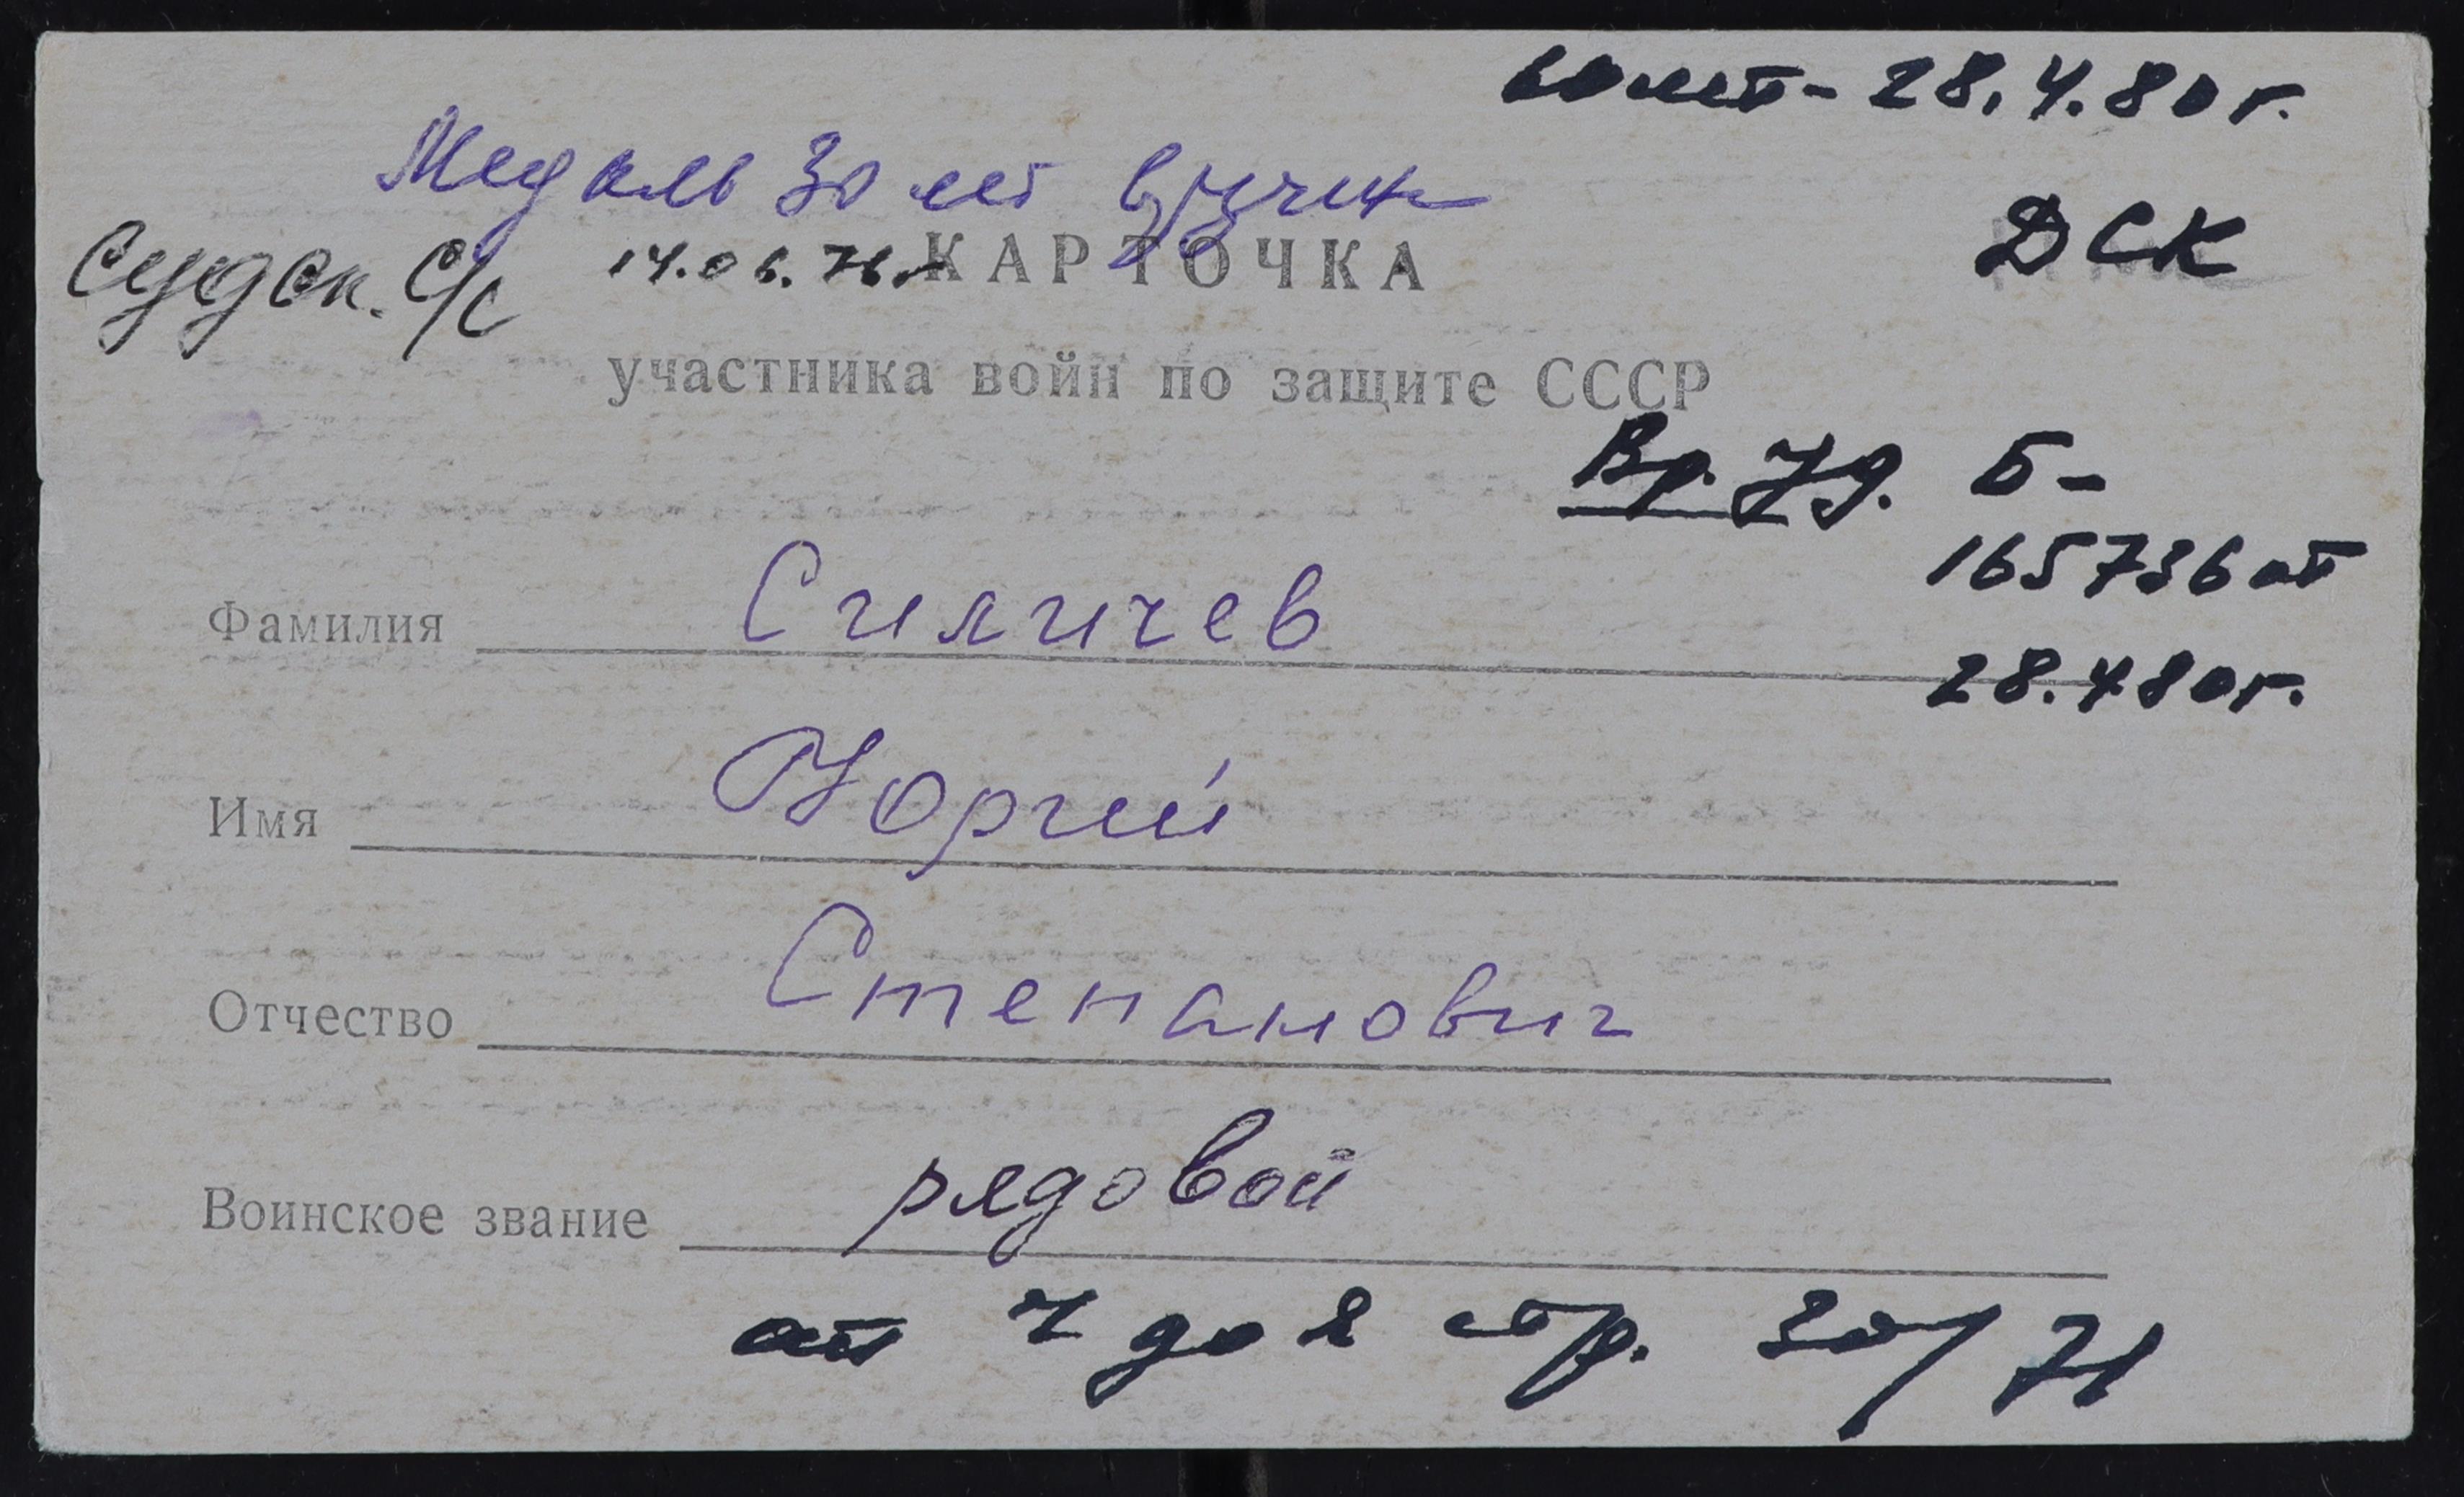 60 лет - 28.4.80 г.
Медаль 30 лет вручен
Судск. с/с 14.06.76 г. КАРТОЧКА ДСК
участника войн по защите СССР
Вр. Уд. Б-
165736 от
28.4.80 г.
Фамилия Силичев
Имя Юргий
Отчество Степанович
Воинское звание рядовой
от 4 до 2 стр. 30/71